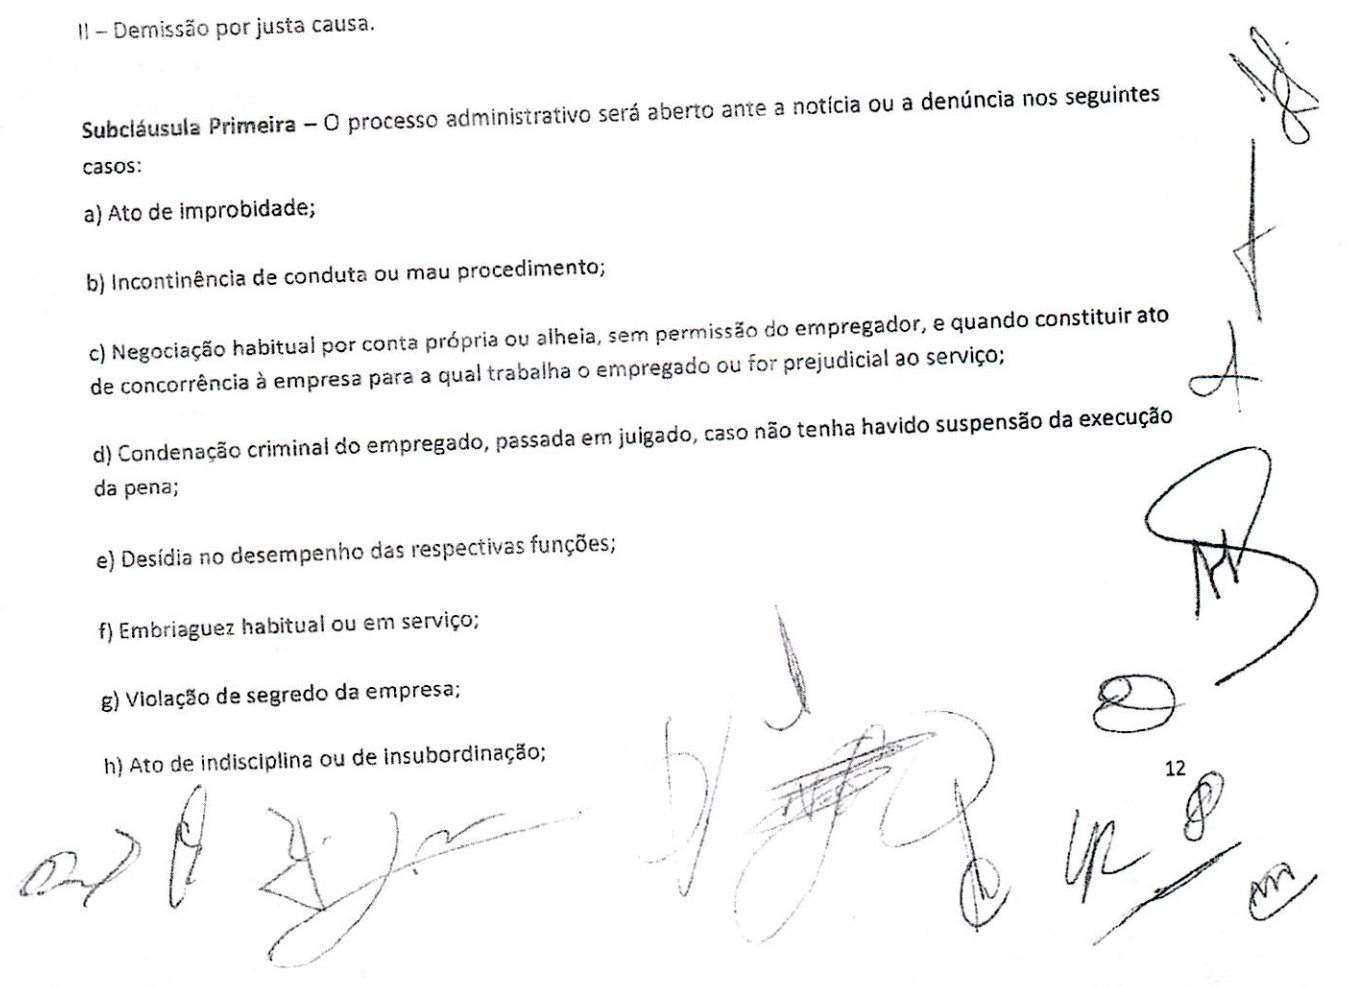 II – Demissão por justa causa.
Subcláusula Primeira – O processo administrativo será aberto ante a notícia ou a denúncia nos seguintes
casos:
a) Ato de improbidade;
b) Incontinência de conduta ou mau procedimento;
c) Negociação habitual por conta própria ou alheia, sem permissão do empregador, e quando constituir ato
de concorrência à empresa para a qual trabalha o empregado ou for prejudicial ao serviço;
d) Condenação criminal do empregado, passada em julgado, caso não tenha havido suspensão da execução
da pena;
e) Desídia no desempenho das respectivas funções;
f) Embriaguez habitual ou em serviço;
g) Violação de segredo da empresa;
h) Ato de indisciplina ou de insubordinação;
12